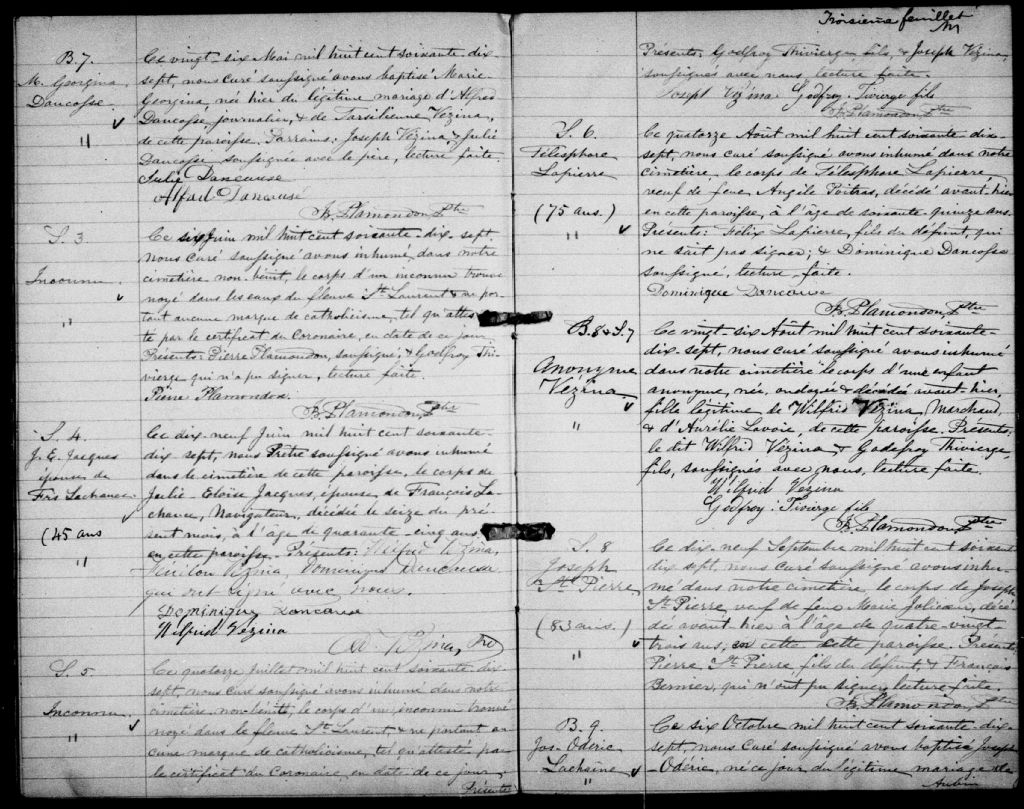 B. 7.
M. Georgina
Dancosse
"
Ce vingt-six Mai mil huit cent soixante-dix-
sept, nous curé soussigné avons baptisé Marie-
Georgina, née hier du légitime mariage d'Alfred
Dancosse, journalier, & de Tarsilienne Vézina,
de cette paroisse. Parrains: Joseph Vézina & Julie
Dancosse soussignée avec le père, lecture faite.
Julie Dancause
Alfred Dancause
F. X. Plamondon, Ptre
S. 3
Inconnu
"
Ce six Juin mil huit cent soixante-dix-sept,
nous curé soussigné avons inhumé, dans notre
cimetière non-bénit, le corps d'un inconnu trouvé
noyé dans les eaux du fleuve St Laurent & ne por-
tant aucune marque de catholicisme, tel qu'attes-
té par le certificat du Coronaire, en date de ce jour.
Présents: Pierre Plamondon, soussigné, & Godfroy Thi-
vierge qui n'a pu signer, lecture faite.
Pierre Plamondon
F. X. Plamondon, Ptre
S. 4.
J. E. Jacques
épouse de
Frs Lachance
(45 ans
"
Ce dix-neuf Juin mil huit cent soixante-
dix sept, nous Prêtre soussigné avons inhumé
dans le cimetière de cette paroisse, le corps de
Julie-Eloïse Jacques, épouse de François La-
chance, Navigateur, décédée le seize du pré-
sent mois, à l'âge de quarante-cinq ans,
en cette paroisse. Présents: Wilfrid Vézina,
Vézina, Dominique Dancause
qui ont signé avec nous.
Dominique Dancause
Wilfrid Vezina
Vézina, Ptre
S. 5.
Inconnu
"
Ce quatorze Juillet mil huit cent soixante-dix-
sept, nous curé soussigné avons inhumé dans notre
cimetière non-bénit, le corps d'un inconnu trouvé
noyé dans le fleuve St Laurent, & ne portant au-
cune marque de catholicisme, tel qu'attesté par
le certificat du Coronaire, en date de ce jour.
Présents
Troisième feuillet
Présents, Godfroy Thivierge fils, & Joseph Vézina,
soussignés avec nous, lecture faite.
Joseph Vézina Godfroy Tivierge fils
F. X. Plamondon, Ptre
S. 6.
Télesphore
Lapierre
(75 ans.)
"
Ce quatorze Août mil huit cent soixante-dix-
sept, nous curé soussigné avons inhumé dans notre
cimetière, le corps de Télesphore Lapierre,
veuf de feue Angèle Poitras, décédé avant-hier
en cette paroisse, à l'âge de soixante-quinze ans.
Présents: Félix Lapierre, fils du défunt, qui
ne sait pas signer; & Dominique Dancosse
soussigné, lecture faite.
Dominique Dancause
F. X. Plamondon, Ptre
B. 8 & S. 7
Anonyme
Vézina
"
Ce vingt-six Août mil huit cent soixante-
dix-sept, nous curé soussigné avons inhumé
dans notre cimetière le corps d'une enfant
anonyme, née, ondoyée & décédée avant-hier,
fille légitime de Wilfrid Vézina, Marchand,
& d'Aurélie Lavoie, de cette paroisse. Présents:
le dit Wilfrid Vézina, & Godefroy Thivierge,
fils, soussignés avec nous, lecture faite.
Wilfrid Vezina
Godfroy Tivierge fils
F. X. Plamondon, Ptre
S. 8
Joseph
St. Pierre
(83 ans.)
"
Ce dix-neuf Septembre mil huit cent soixante
dix sept, nous curé soussigné avons inhu-
mé dans notre cimetière, le corps de Joseph
St. Pierre, veuf de feue Marie Jolicœur, décé-
dé avant-hier à l'âge de quatre-vingt
trois ans, en cette paroisse. Présents,
Pierre St. Pierre, fils du défunt, & François
Bernier, qui n'ont pu signer, lecture faite.
F. X. Plamondon, Ptre
B. 9.
Jos-Odéric
Lachaine
"
Ce six Octobre mil huit cent soixante-dix-
sept, nous Curé soussigné avons baptisé Joseph
-Odéric, né ce jour du légitime mariage de
Aubin